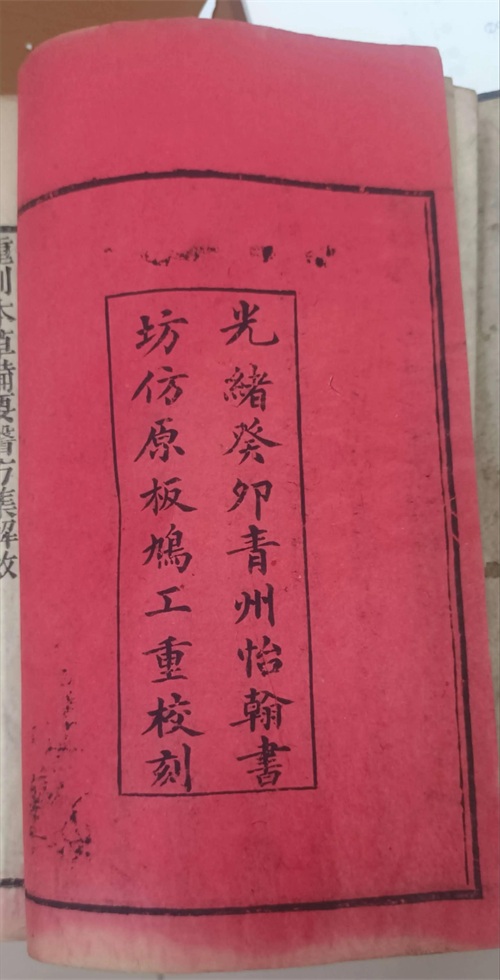 光緒癸卯青州怡翰書
坊仿原板鳩工重校刻
重刻本草備要醫方集解敘